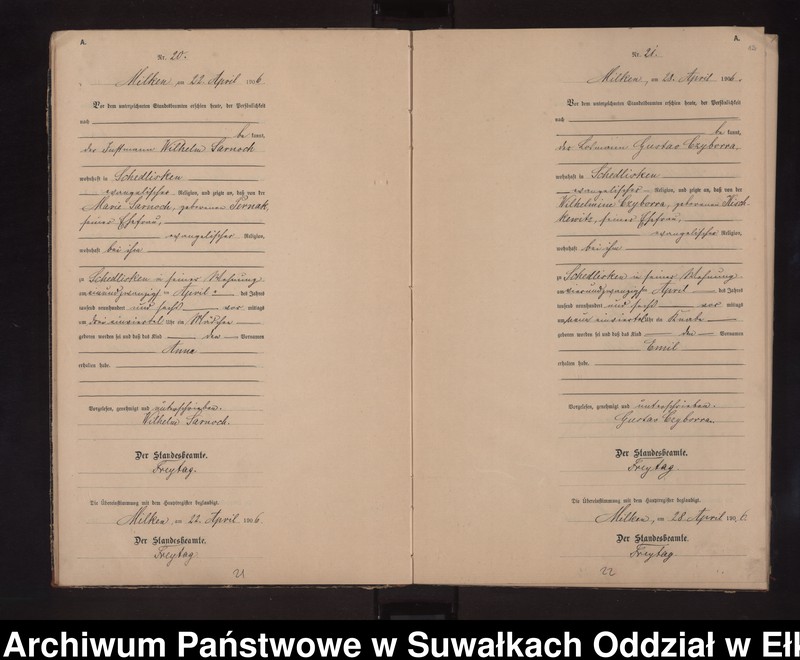 A.
Nr. 20.
Milken, am 22 April 1906
Vor dem unterzeichneten Standesbeamten erschien heute, der Persönlichkeit
nach
be kannt,
der Instmann Wilhelm Sarnoch
wohnhaft in Schedlisken
evangelischer Religion, und zeigte an, daß von der
Marie Sarnoch, geborenen
seiner Ehefrau,
evangelischer Religion,
wohnhaft bei ihm
zu Schedlisken in seiner Wohnung
am April des Jahres
tausend neunhundert und sechs vor mittags
um Uhr ein Mädchen
geboren worden sei und daß das Kind den Vornamen
Anna
erhalten habe.
Vorgelesen, genehmigt und unterschrieben.
Wilhelm Sarnoch.
Der Standesbeamte.
Freytag.
Die Übereinstimmung mit dem Hauptregister beglaubigt.
Milken, am 22. April 1906.
Der Standesbeamte.
Freytag
21
A.
Nr. 21.
Milken, am 28. April 1906.
Vor dem unterzeichneten Standesbeamten erschien heute, der Persönlichkeit
nach
be kannt,
der Gustav Czyborra
wohnhaft in Schedlisken
evangelischer Religion, und zeigte an, daß von der
Wilhelmine Czyborra, geborenen
seiner Ehefrau,
evangelischer Religion,
wohnhaft bei ihm
zu Schedlisken in seiner Wohnung
am vierundzwanzigsten April des Jahres
tausend neunhundert und sechs vor mittags
um Uhr ein Knabe
geboren worden sei und daß das Kind den Vornamen
Emil
erhalten habe.
Vorgelesen, genehmigt und unterschrieben.
Gustav Czyborra.
Der Standesbeamte.
Freytag
Die Übereinstimmung mit dem Hauptregister beglaubigt.
Milken, am 28 April 1906.
Der Standesbeamte.
Freytag.
22
Archiwum Państwowe w Suwałkach Oddział w Ełk